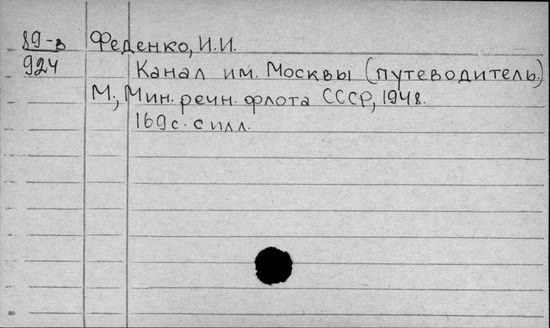 89-в Феденко, И.И.
924 Канал им. Москвы (путеводитель.)
М., Мин. речн. флота СССР, 1948.
169 с. с илл.